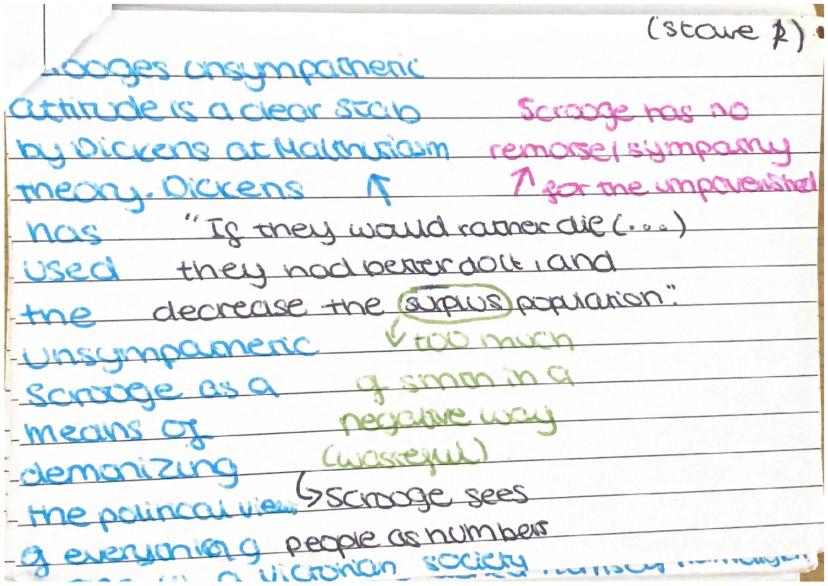 (stave 1)
ooges unsympathetic
attitude is a clear stab
by Dickens at Malthusiasm
theory. Dickens
has
used
the
unsympatheric
Scrooge as a
means of
demonizing
the political view
of everything
Victorian society
Scrooge has no
remorse/sympathy
for the impoverished
"If they would rather die (...)
they had better do it, and
decrease the surplus population."
too much
of smthn in a
negative way
(wasteful)
Scrooge sees
people as numbers